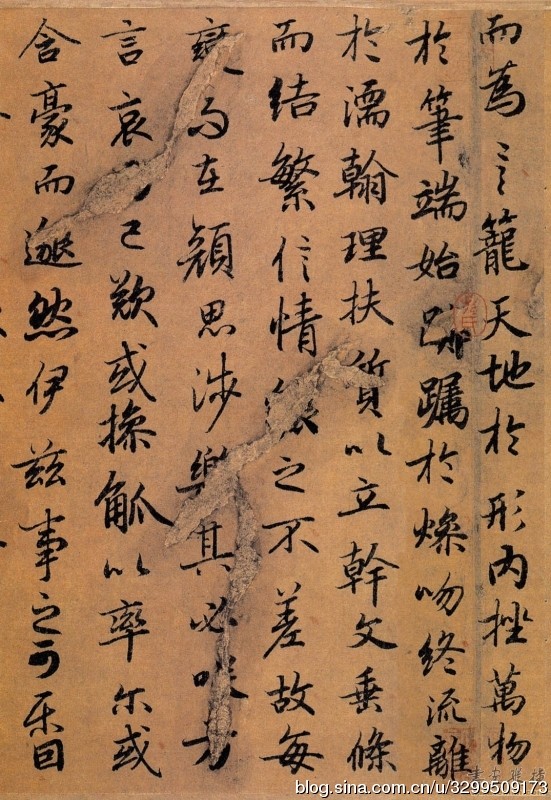 而為言籠天地於形內挫萬物
於筆端始躅於燥吻終流離
於濡翰理扶質以立幹文垂條
而結繁信情之不差故每
而在顏思涉樂其必方
言哀已歎或操觚以率尔或
含豪而邈然伊茲事之可樂固
blog.sina.com.cn/u/3299509173